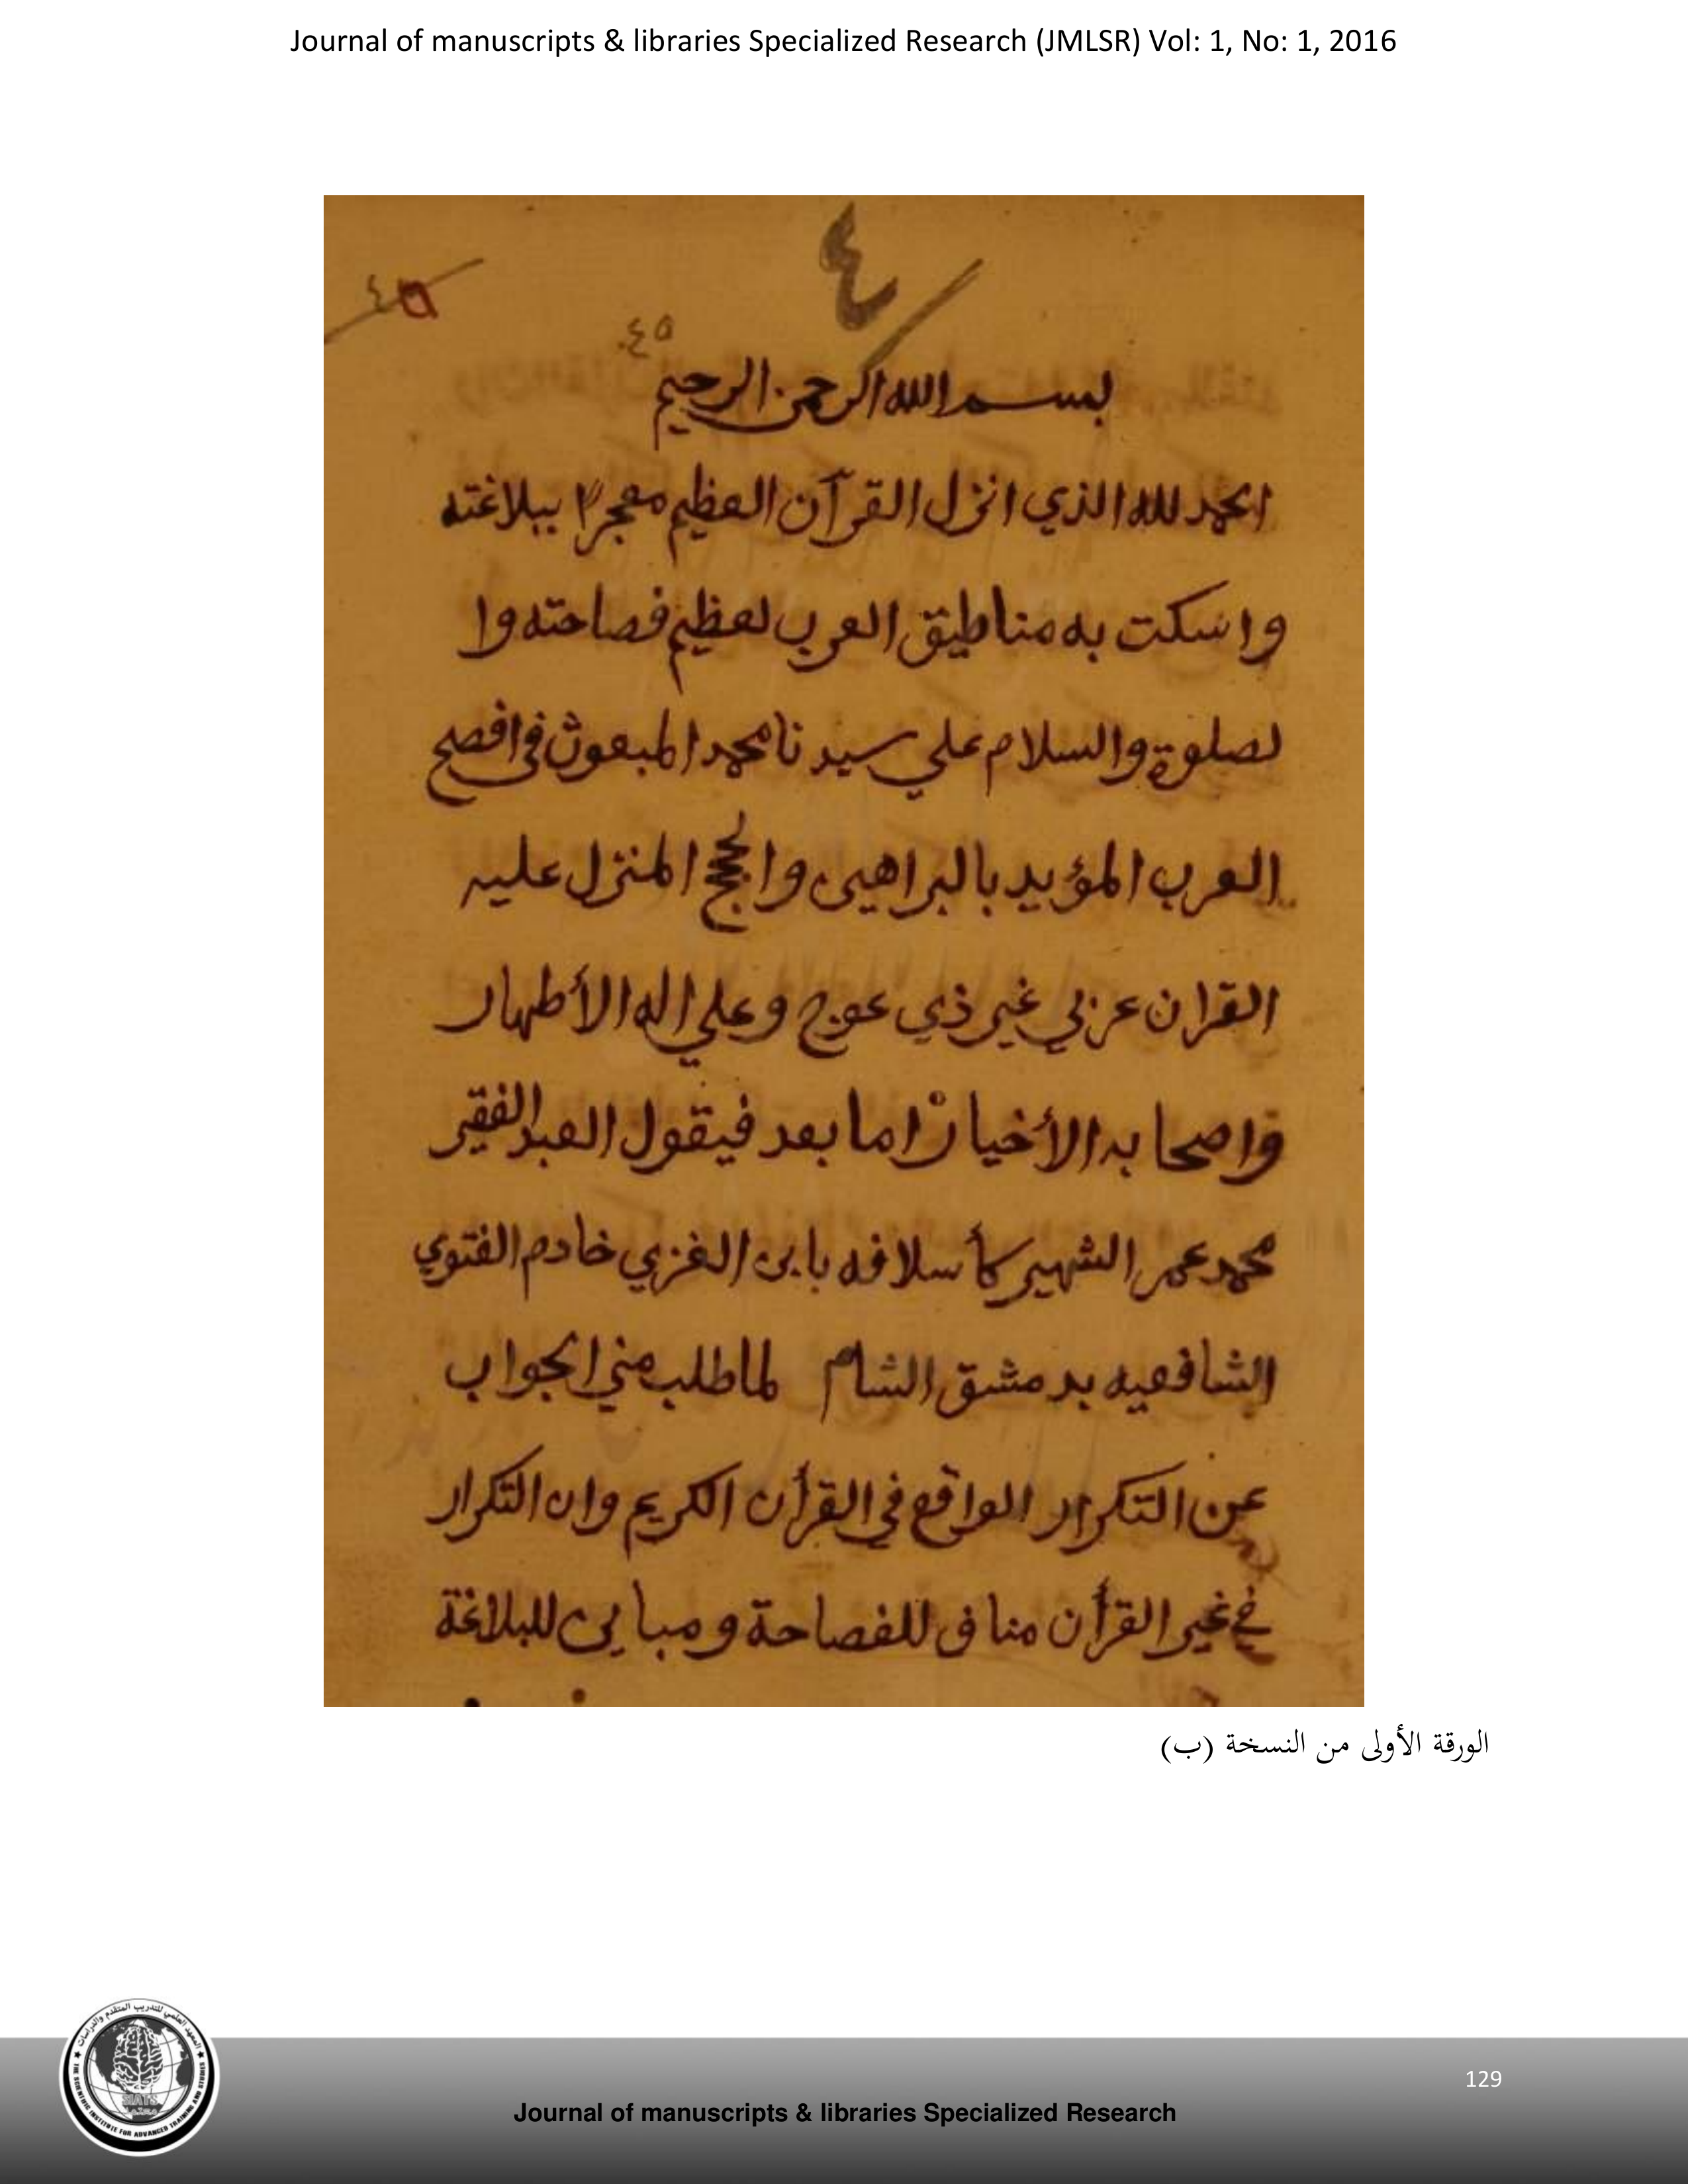 Journal of manuscripts & libraries Specialized Research (JMLSR) Vol: 1, No: 1, 2016
٤
٤٥
٤٥
بسم الله الرحمن الرحيم
الحمد لله الذي انزل القرآن العظيم معجزا ببلاغته
واسكت به مناطيق العرب لعظيم فصاحته وا
لصلوة والسلام علي سيدنا محمد المبعوث في افصح
العرب المؤيد بالبراهين والحجج المنزل عليه
القران عربي غير ذي عوج وعلي اله الأطهار
واصحابه الأخيار اما بعد فيقول العبد الفقير
محمد عمر الشهير كأسلافه بابن الغزي خادم الفتوي
الشافعيه بدمشق الشام لما طلب مني الجواب
عن التكرار الواقع في القرأن الكريم وان التكرار
في غير القرأن مناف للفصاحة ومباين للبلاغة
الورقة الأولى من النسخة (ب)
129
Journal of manuscripts & libraries Specialized Research